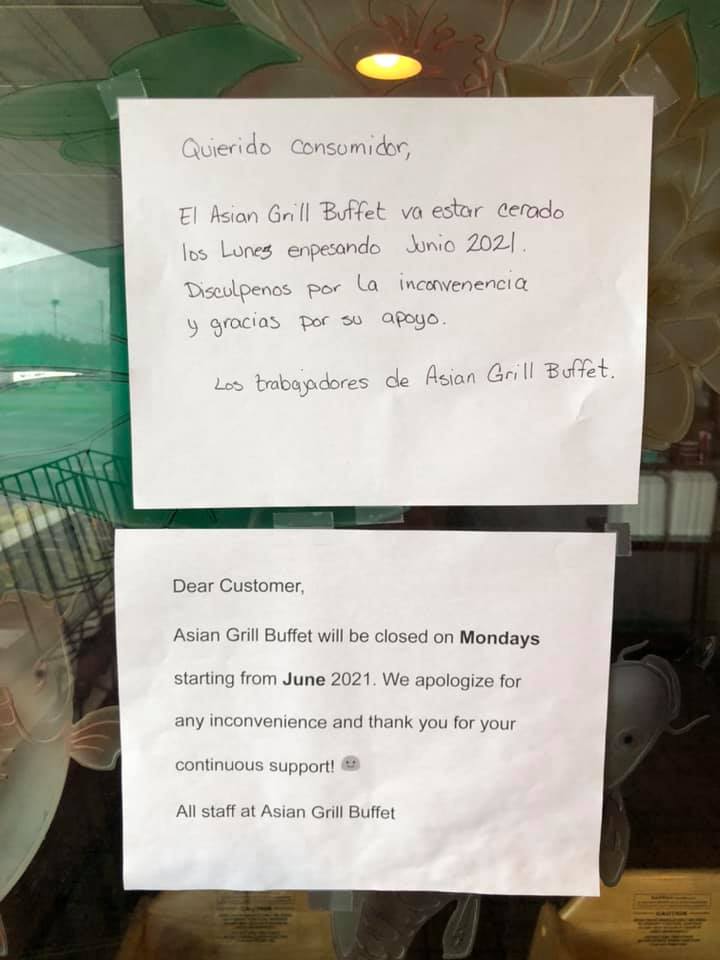 Quierido consumidor,
El Asian Grill Buffet va estar cerado
los Lunes enpesando Junio 2021.
Disculpenos por la inconvenencia
y gracias por su apoyo.
Los trabajadores de Asian Grill Buffet.
Dear Customer,
Asian Grill Buffet will be closed on Mondays
starting from June 2021. We apologize for
any inconvenience and thank you for your
continuous support! 🙂
All staff at Asian Grill Buffet
CAUTION